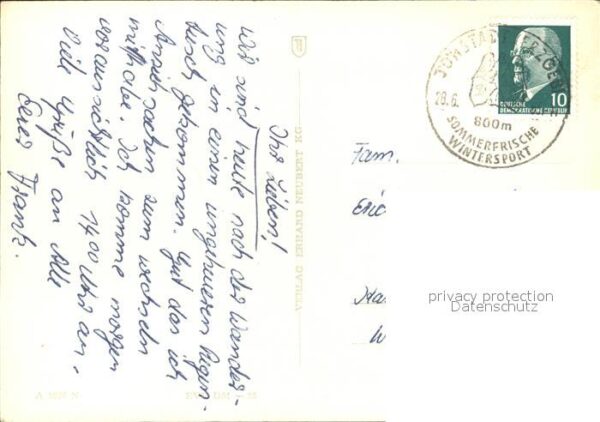 Ihr Lieben!
Wir sind heute nach der Wander-
ung in einen ungeheuren Regen-
tusch gekommen. Gut das ich
Anziehsachen zum wechseln
mithabe. Ich komme morgen
voraussichtlich 1400 Uhr an.
Viele Grüße an Alle
Euer Frank.
VERLAG ERHARD NEUBERT KG
JÖHSTADT
28.6.
800m
SOMMERFRISCHE
WINTERSPORT
10
DEUTSCHE
DEMOKRATISCHE REPUBLIK
Fam.
privacy protection
Datenschutz